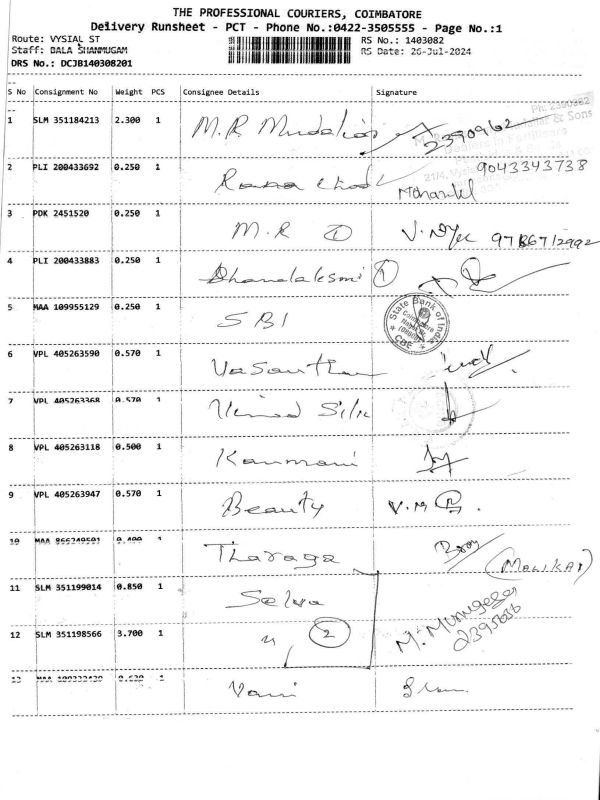 THE PROFESSIONAL COURIERS, COIMBATORE
Delivery Runsheet - PCT - Phone No.:0422-3505555 - Page No.:1
Route: VYSIAL ST RS No.: 1403082
Staff: BALA SHANMUGAM RS Date: 26-Jul-2024
DRS No.: DCJB140308201
S No Consignment No Weight PCS Consignee Details Signature
Ph: 2390962
& Sons
1 SLM 351184213 2.300 1 M.R Mudaliar 2390962
2 PLI 200433692 0.250 1 9043343738
3 PDK 2451520 0.250 1 M.R 1
4 PLI 200433883 0.250 1 Dhandalesmi 1
5 MAA 109955129 0.250 1 SBI
State Bank of India
CBE
6 VPL 405263590 0.570 1 Vasantha
7 VPL 405263368 0.570 1 Vinod Silk
8 VPL 405263118 0.500 1 Kanmani
9 VPL 405263947 0.570 1 Beauty V.M
10 MAA 1 Tharaga
11 SLM 351199014 0.850 1 Selva
12 SLM 351198566 3.700 1 " 2 M. Murugesa
2395636
13 MAA 0.620 1 Vani